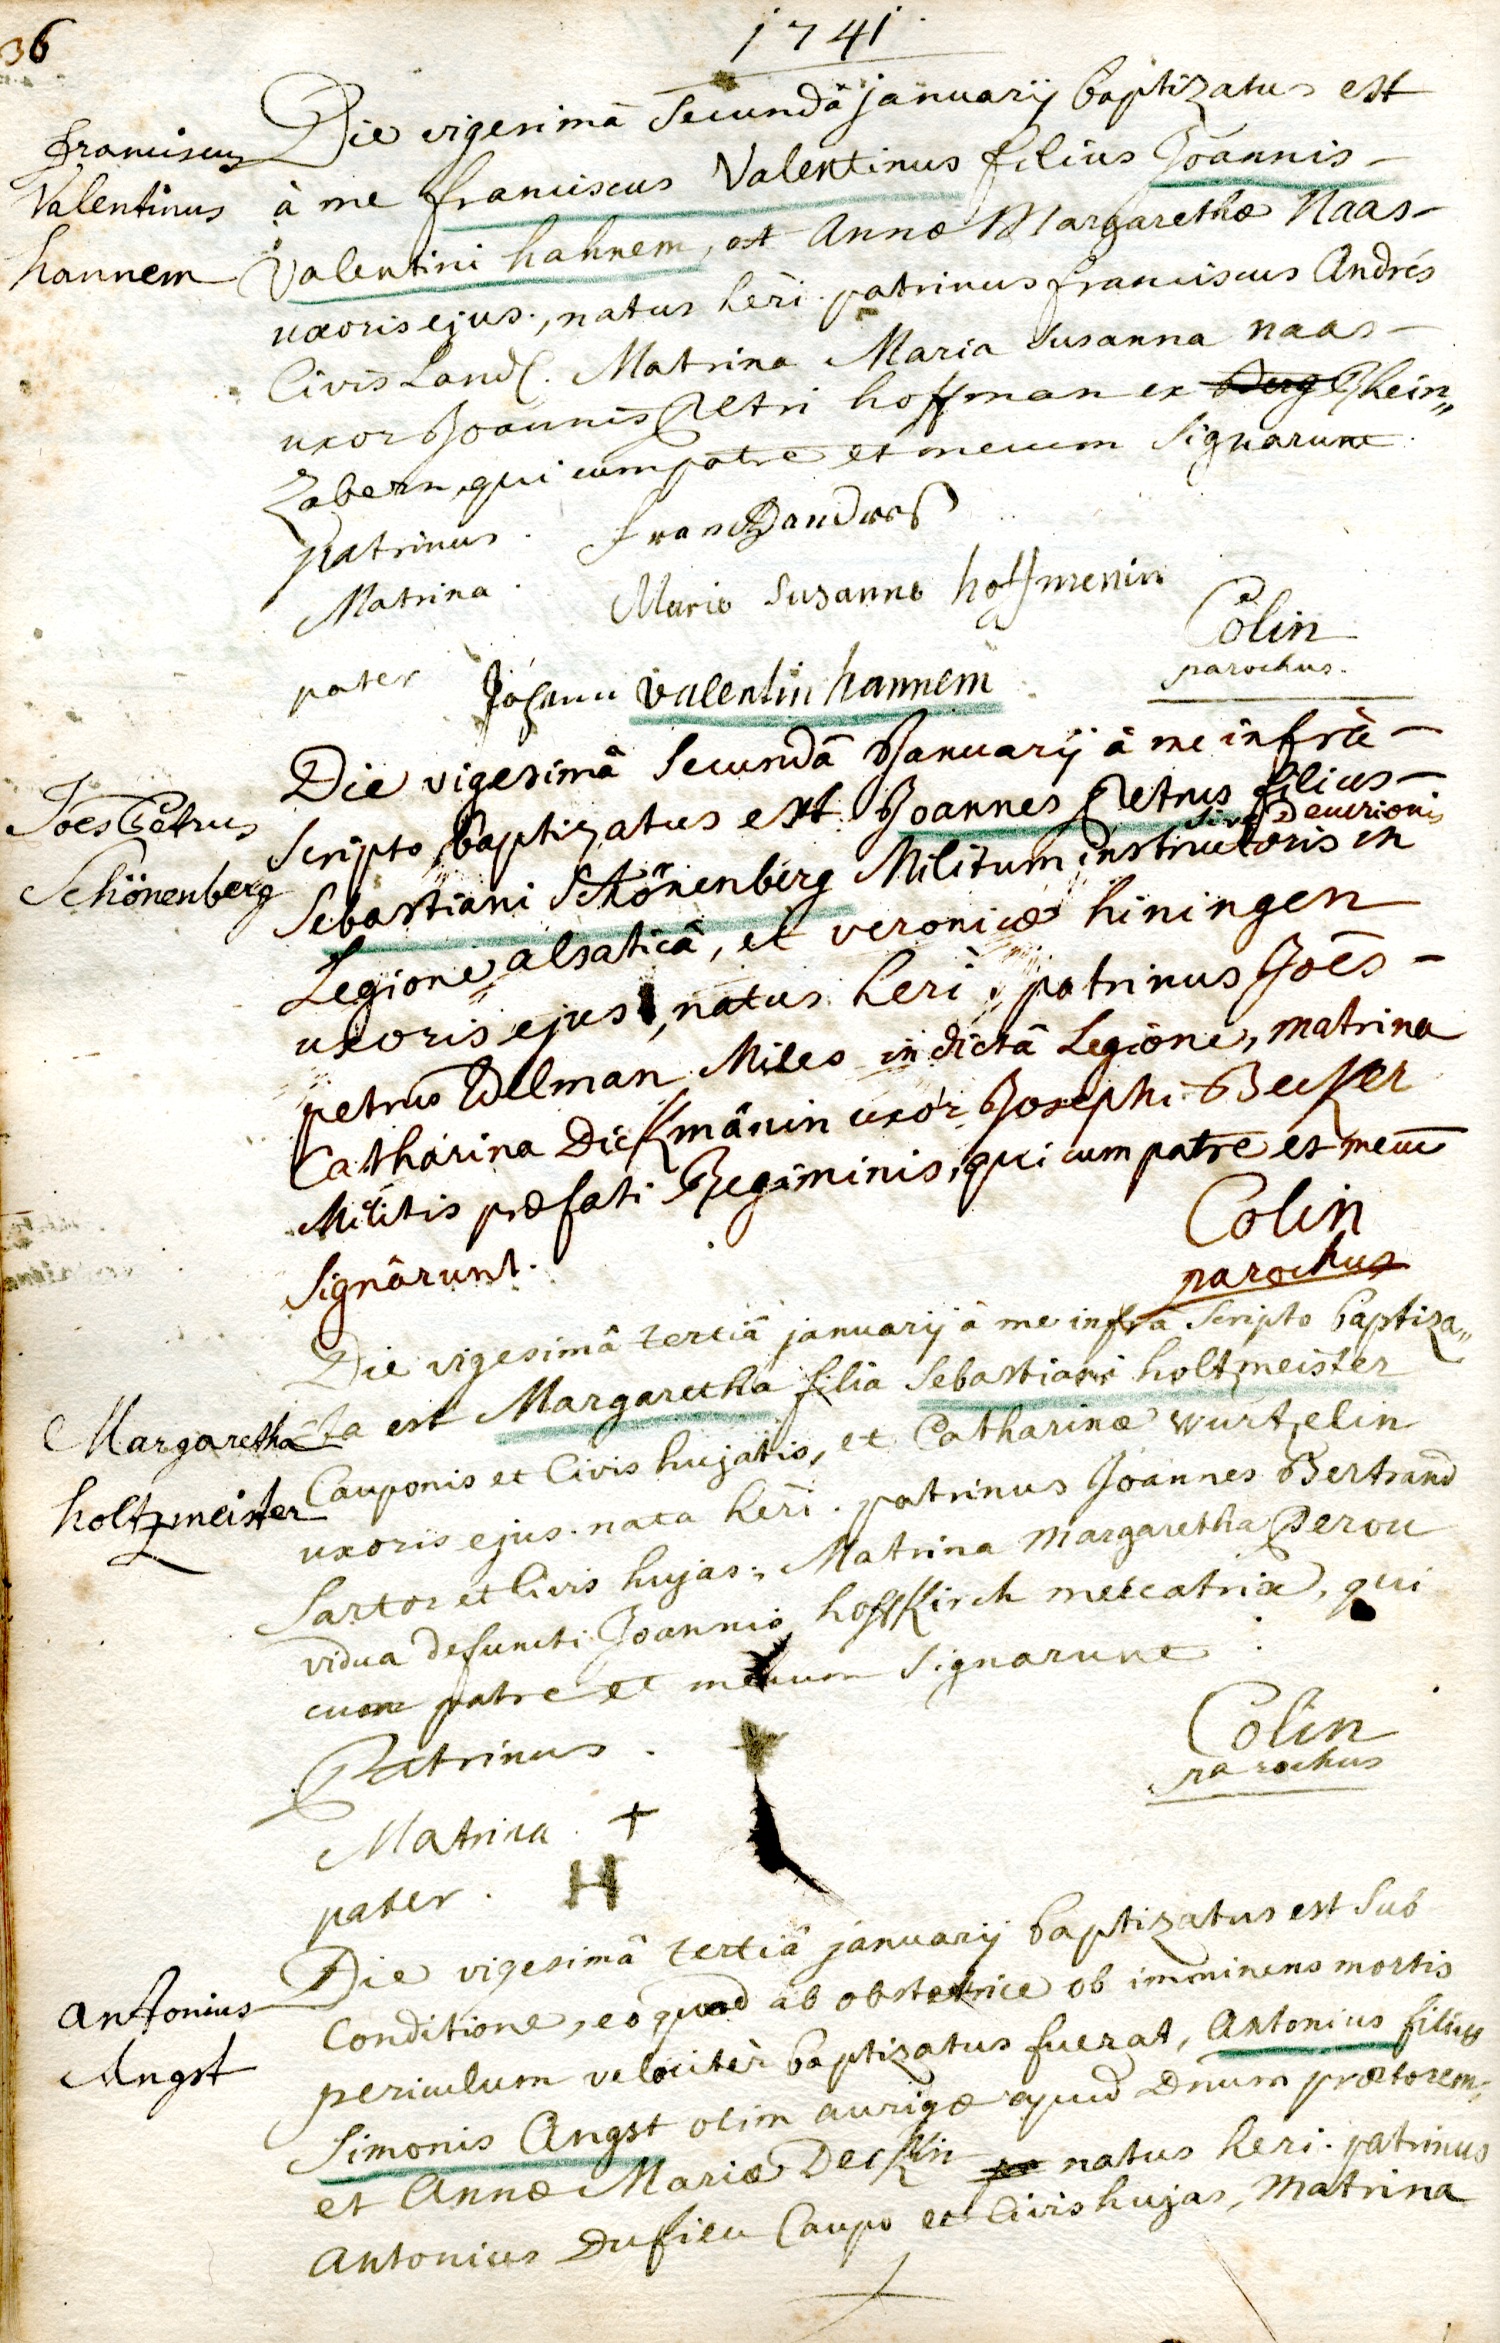 36
1741
franciscus
Valentinus
hannem
Die vigesimâ Secundâ januarij baptizatus est
à me franciscus Valentinus filius Joannis
Valentini hahnem, et Annæ Margarethæ Naas
uxoris ejus, natus heri. patrinus franciscus Andrés
Civis Land. Matrina Maria Susanna naas
uxor Joannis Petri hoffman ex Rhein„
zabern, qui cum patre et mecum Signarunt.
patrinus.
Matrina. Maria Susanna hoffmenin
pater Johann Valentin hannem
Colin
parochus.
Joes Petrus
Schönenberg
Die vigesimâ Secundâ Januarij à me infrà
Scripto baptizatus est Joannes Petrus filius
Sebastiani Schönenberg Militum instructoris sive Decurionis in
Legione alsaticâ, et veronicæ hiningen
uxoris ejus, natus heri, patrinus Joēs
petrus Edelman Miles in dictâ Legione, matrina
Catharina Dickmänin uxor Josephi Becker
Militis præfati Regiminis, qui cum patre et mecū
Signârunt.
Colin
parochus
Margaretha
holtzmeister
Die vigesimâ tertiâ januarij à me infrà Scripto baptiza„
ta est Margaretha filia Sebastiani holtzmeister
Cauponis et Civis hujatis, et Catharinæ wurtzelin
uxoris ejus. nata heri. patrinus Joannes Bertrand
Sartor et Civis hujas; Matrina Margaretha Perou
vidua defuncti Joannis hoffkirch mercatrix, qui
cum patre et mecum Signarunt
Patrinus. +
Matrina. +
pater. H
Colin
parochus
antonius
Angst
Die vigesimâ tertiâ januarij baptizatus est Sub
Conditione, eò quod ab obstetrice ob imminens mortis
periculum velociter baptizatus fuerat, Antonius filius
Simonis Angst olim aurigæ apud Dnum prætorem,
et Annæ Mariæ Deckin natus heri. patrinus
Antonius Dufieu Caupo et Civis hujas, Matrina